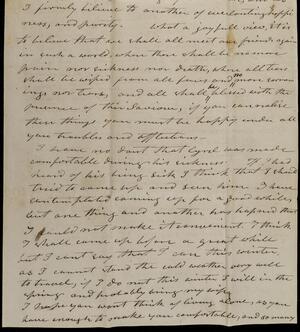 I firmly believe to another of everlasting happi-
ness, and purity. What a joyfull view it is
to believe that we shall all meet our friends again
in such a world, when there shall be no more
pain nor sickness nor death, where all tears
shall be wiped from all faces and no more
ings nor tears, and all shall be blessed with the
presence of the Saviour, if you can realise
these things you must be happy under all
your troubles and afflictions.
I have no doubt that Cyrel was made
comfortable during his sickness If I had
heard of his being sick I think that I should
tried to came up and seen him I have
contemplated coming up for a good while,
but one thing and another has happened that
I could not make it convenient. I think
I shall came up before a great while
but I can't say that I can this winter
as I cannot stand the cold weather very well
to travel, if I do not this winter I will in the
spring and probably bring my wife.
I hope you wont think of living alone, as you
have enough to make you comfortable, and so many